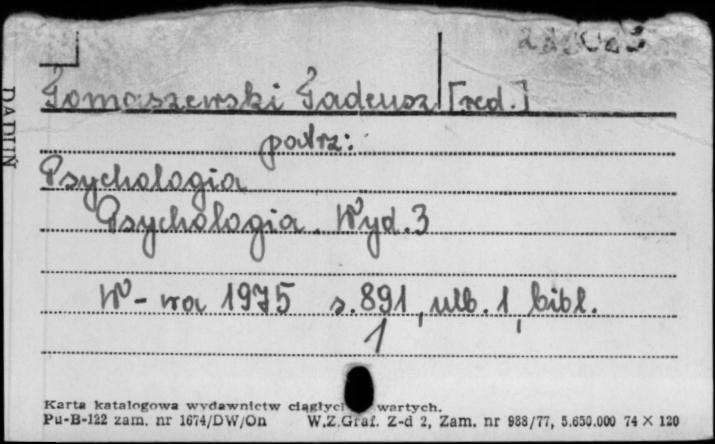 Tomaszewski Tadeusz [red.]
patrz:
Psychologia
Psychologia. Wyd. 3
W-wa 1975 s. 891, ulb. 1, bibl.
1
DADUŃ
Karta katalogowa wydawnictw ciągłyc wartych.
Pu-B-122 zam. nr 1674/DW/On W.Z.Graf. Z-d 2, Zam. nr 988/77, 5.650.000 74 × 120